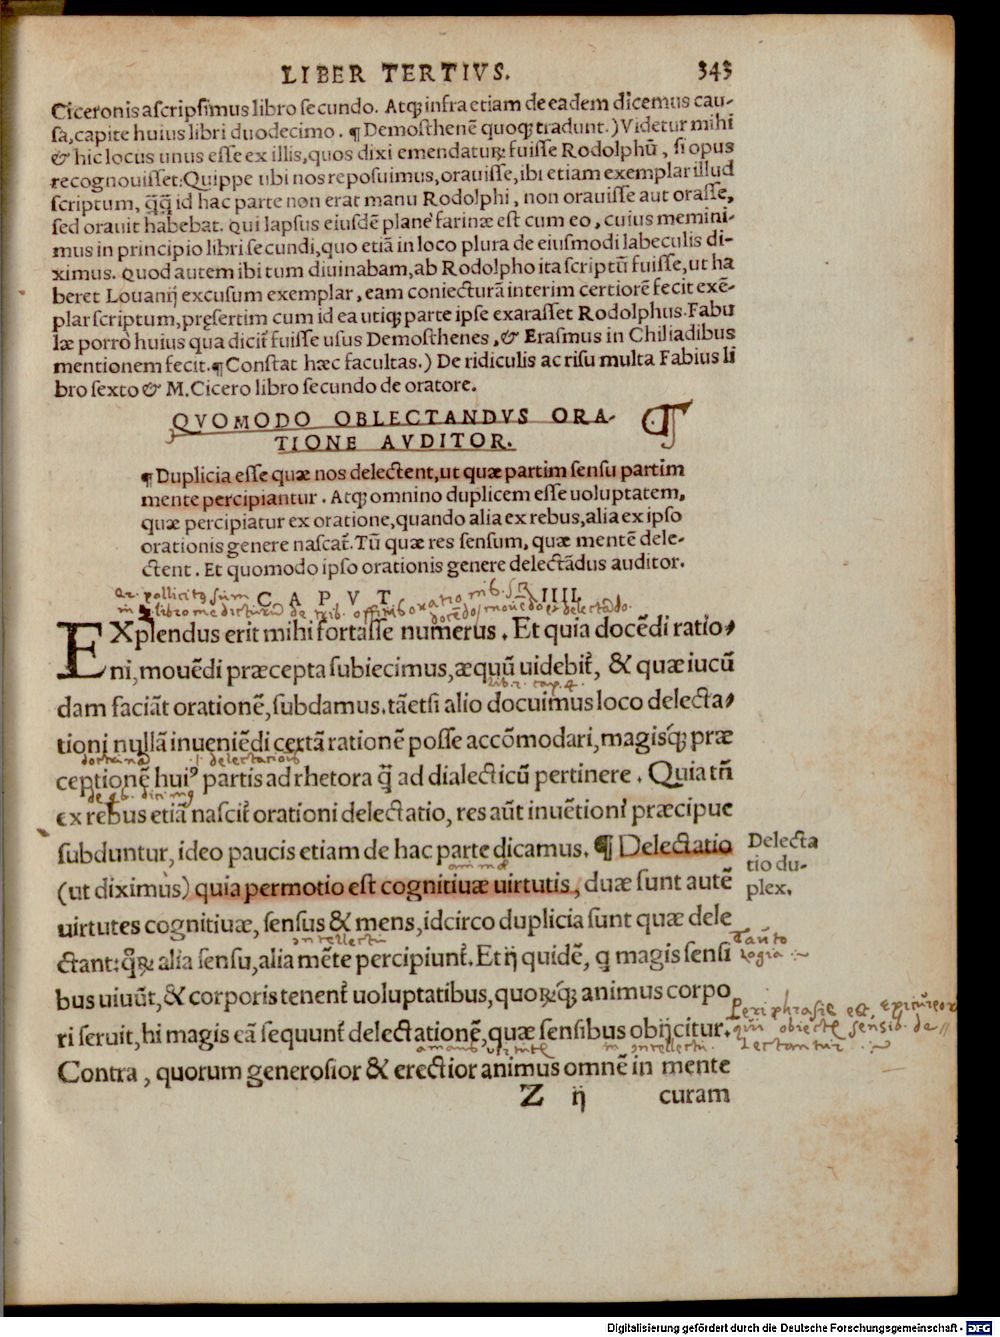 LIBER TERTIVS. 343
Ciceronis ascripsimus libro secundo. Atq; infra etiam de eadem dicemus cau-
sa, capite huius libri duodecimo. ¶ Demosthenẽ quoq; tradunt.) Videtur mihi
& hic locus unus esse ex illis, quos dixi emendaturꝝ fuisse Rodolphũ, si opus
recognouisset: Quippe ubi nos reposuimus, orauisse, ibi etiam exemplar illud
scriptum, q̃q̃ id hac parte non erat manu Rodolphi, non orauisse aut orasse,
sed orauit habebat. Qui lapsus eiusdẽ planè farinæ est cum eo, cuius memini-
mus in principio libri secundi, quo etiã in loco plura de eiusmodi labeculis di-
ximus. Quod autem ibi tum diuinabam, ab Rodolpho ita scriptũ fuisse, ut ha
beret Louanij excusum exemplar, eam coniecturã interim certiorẽ fecit exẽ-
plar scriptum, pręsertim cum id ea utiq; parte ipse exarasset Rodolphus. Fabu
læ porrò huius qua dicit̃ fuisse usus Demosthenes, & Erasmus in Chiliadibus
mentionem fecit. ¶ Constat hæc facultas.) De ridiculis ac risu multa Fabius li
bro sexto & M. Cicero libro secundo de oratore.
QVOMODO OBLECTANDVS ORA-
TIONE AVDITOR.
¶ Duplicia esse quæ nos delectent, ut quæ partim sensu partim
mente percipiantur. Atq; omnino duplicem esse uoluptatem,
quæ percipiatur ex oratione, quando alia ex rebus, alia ex ipso
orationis genere nascat̃. Tũ quæ res sensum, quæ mentẽ dele-
ctent. Et quomodo ipso orationis genere delectãdus auditor.
CAPVT IIII.
EXplendus erit mihi fortasse numerus. Et quia docẽdi ratio-
ni, mouẽdi præcepta subiecimus, æquũ uidebit̃, & quæ iucũ
lib. 2. cap. 4.
dam faciãt orationẽ, subdamus. tãetsi alio docuimus loco delecta-
tioni nullã inueniẽdi certã rationẽ posse accõmodari, magisq́; præ
delectationis
ceptionẽ huiꝰ partis ad rhetora q̃ ad dialecticũ pertinere. Quia tñ
ex rebus etiã nascit̃ orationi delectatio, res aũt inuẽtioni præcipue
subduntur, ideo paucis etiam de hac parte dicamus. ¶ Delectatio
Delecta
tio du-
plex.
(ut diximus) quia permotio est cognitiuæ uirtutis, duæ sunt autẽ
uirtutes cognitiuæ, sensus & mens, idcirco duplicia sunt quæ dele
intellectu
ctant: qꝛ̃ꝝ alia sensu, alia mẽte percipiunt̃. Et ij quidẽ, q magis sensi
Tauto
logia
bus uiuũt, & corporis tenent̃ uoluptatibus, quoꝝq́; animus corpo
Periphrasis est, Epicureor
ri seruit, hi magis eã sequunt̃ delectationẽ, quæ sensibus obijcitur.
qui obiectis sensib. de-
lectantur
Contra, quorum generosior & erectior animus omnẽ in mente
Z ij curam
Digitalisierung gefördert durch die Deutsche Forschungsgemeinschaft - DFG